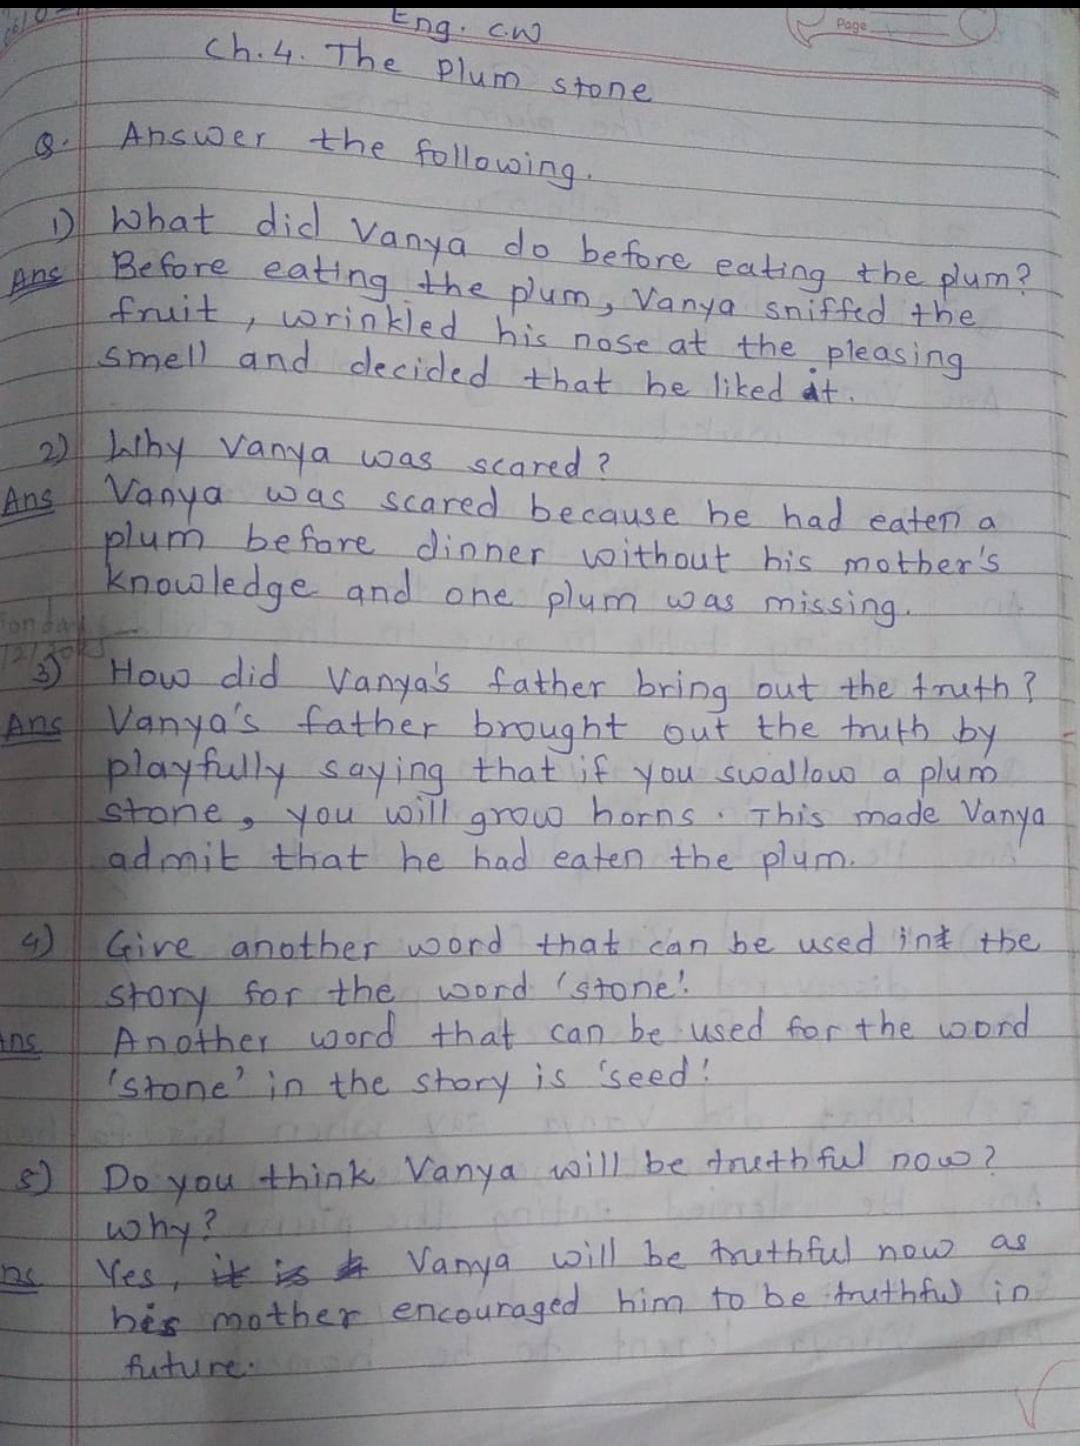 Eng. C.W
Page
Ch.4. The Plum stone
Q. Answer the following.
1) What did Vanya do before eating the plum?
Ans Before eating the plum, Vanya sniffed the
fruit, wrinkled his nose at the pleasing
smell and decided that he liked it.
2) Why Vanya was scared?
Ans Vanya was scared because he had eaten a
plum before dinner without his mother's
knowledge and one plum was missing.
3) How did Vanya's father bring out the truth?
Ans Vanya's father brought out the truth by
playfully saying that if you swallow a plum
stone, you will grow horns. This made Vanya
admit that he had eaten the plum.
4) Give another word that can be used in the
story for the word 'stone'.
Ans Another word that can be used for the word
'stone' in the story is 'seed'.
5) Do you think Vanya will be truthful now?
Why?
Ans Yes, it is Vanya will be truthful now as
his mother encouraged him to be truthful in
future.